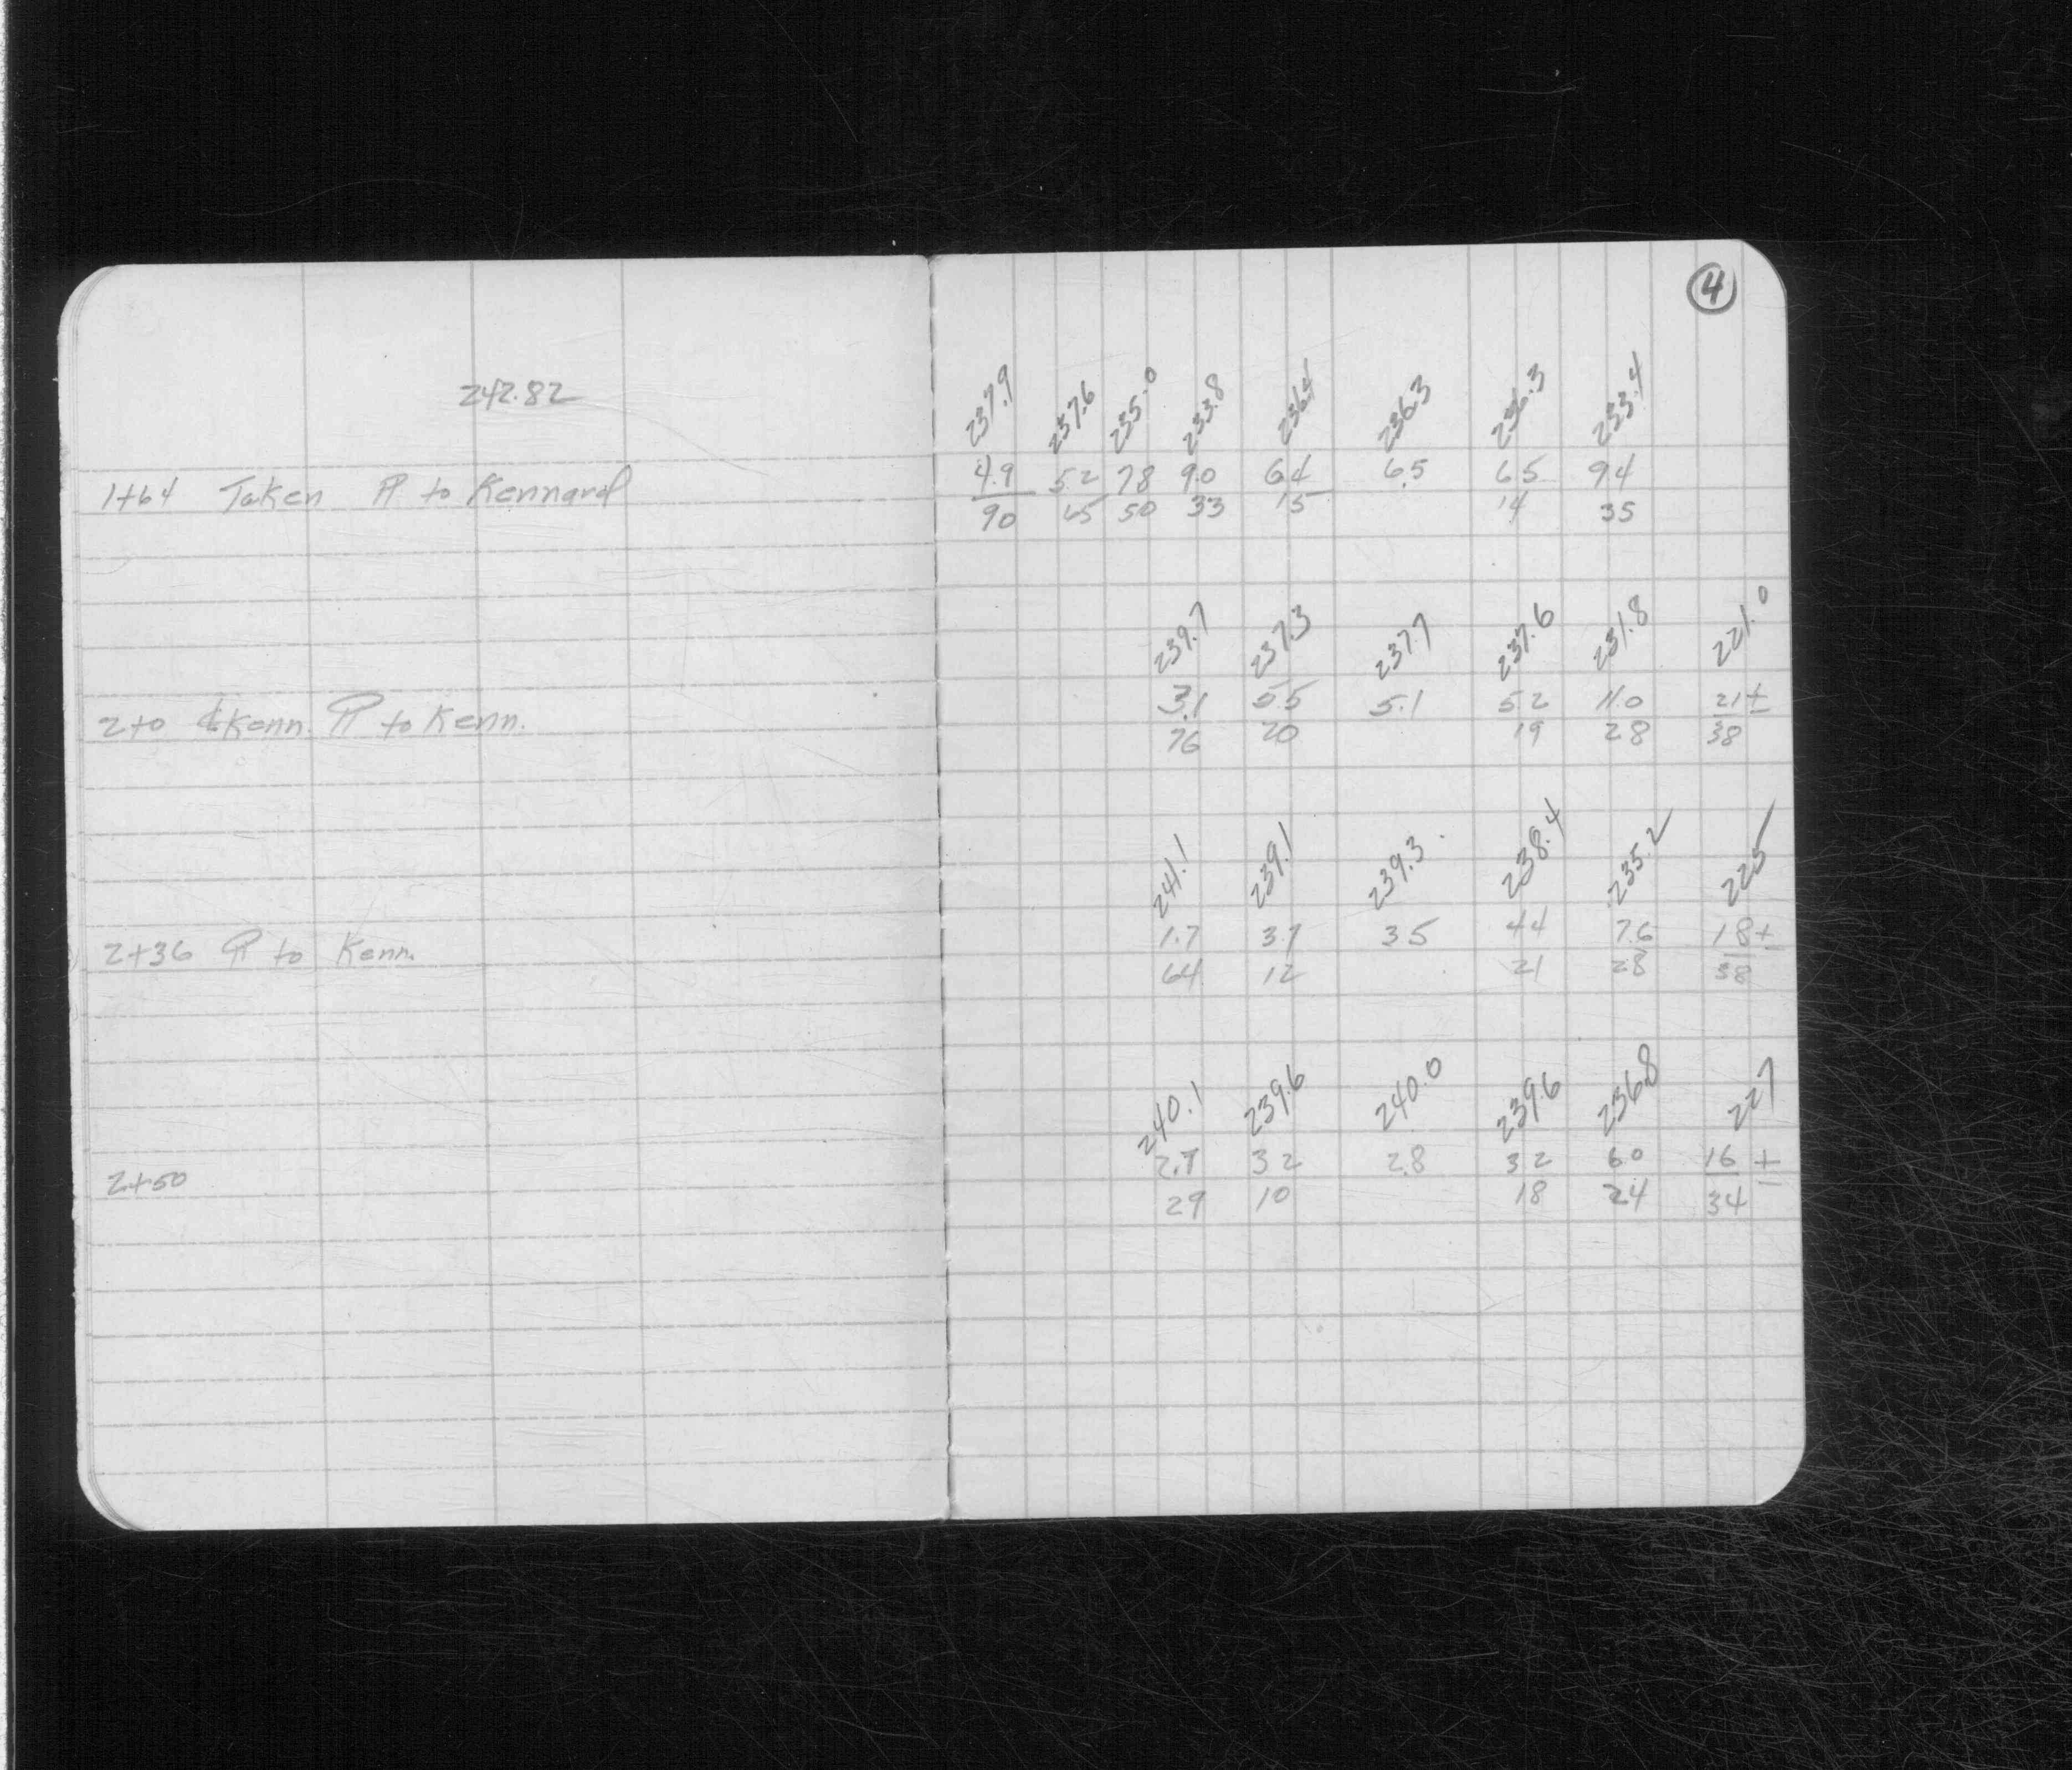 4
242.82
237.9 237.6 235.0 233.8 236.4 236.3 236.3 233.4
4.9 5.2 78 9.0 64 6.5 65 94
1+64 Taken to Kennard
90 65 50 33 15 14 35
239.7 237.3 237.7 237.6 231.8 221.0
3.1 5.5 5.1 52 11.0 21±
2+0 ℄ Kenn. to Kenn.
76 20 19 28 38
241.1 239.1 239.3 238.4 235.2 225
1.7 37 35 44 76 18±
2+36 to Kenn.
64 12 21 28 38
240.1 239.6 240.0 239.6 236.8 227
2.7 32 2.8 32 60 16 ±
2+50
29 10 18 24 34